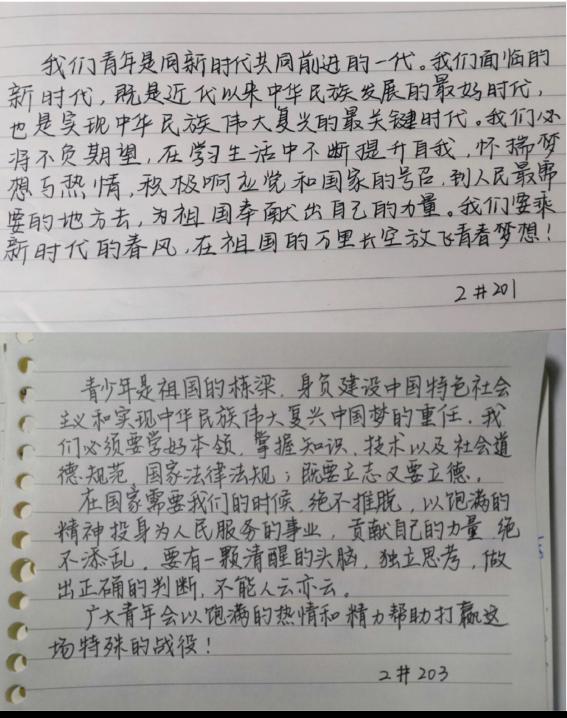 我们青年是同新时代共同前进的一代。我们面临的
新时代，既是近代以来中华民族发展的最好时代，
也是实现中华民族伟大复兴的最关键时代。我们必
将不负期望，在学习生活中不断提升自我，怀揣梦
想与热情，积极响应党和国家的号召，到人民最需
要的地方去，为祖国奉献出自己的力量。我们要乘
新时代的春风，在祖国的万里长空放飞青春梦想！
2#201
青少年是祖国的栋梁，身负建设中国特色社会
主义和实现中华民族伟大复兴中国梦的重任，我
们必须要学好本领，掌握知识、技术以及社会道
德规范、国家法律法规；既要立志又要立德。
在国家需要我们的时候，绝不推脱，以饱满的
精神投身为人民服务的事业，贡献自己的力量，绝
不添乱。要有一颗清醒的头脑，独立思考，做
出正确的判断，不能人云亦云。
广大青年会以饱满的热情和精力帮助打赢这
场特殊的战役！
2#203